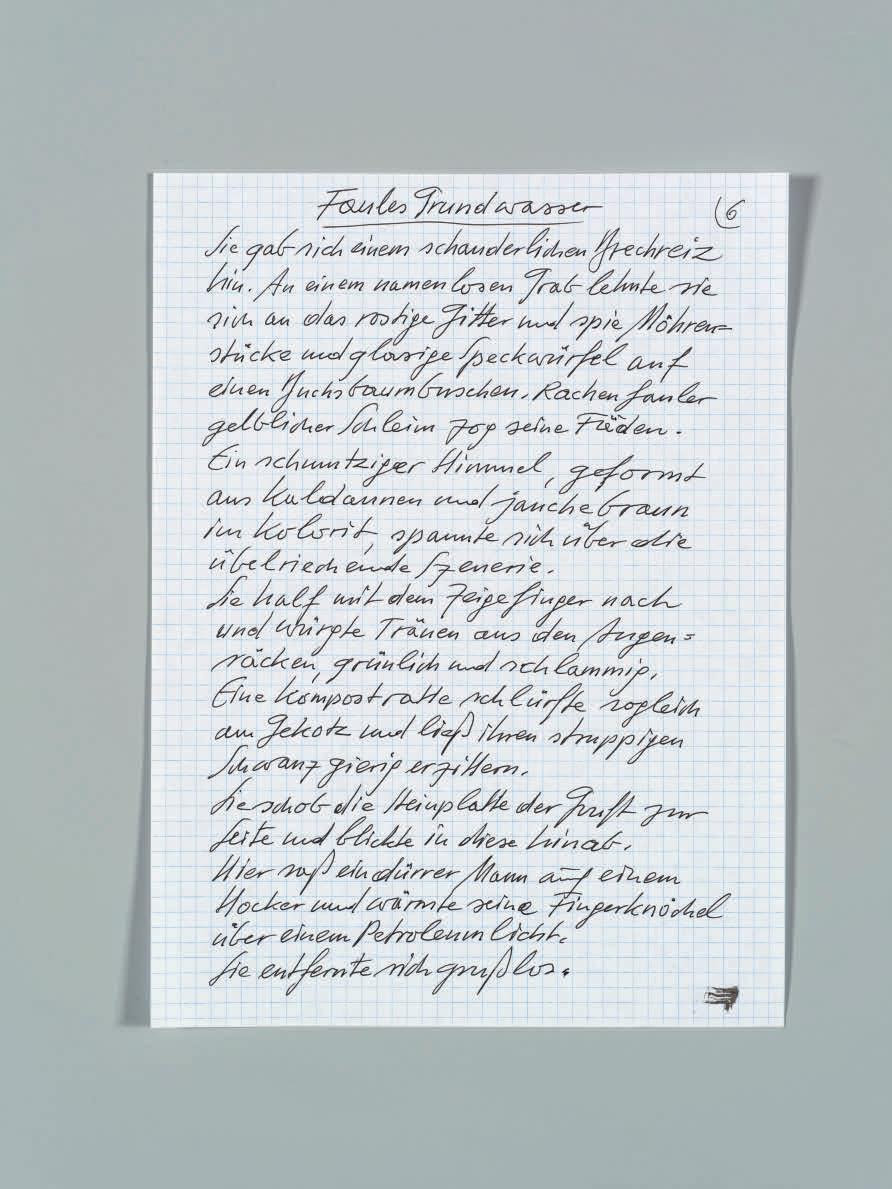 Faules Grundwasser
6
Sie gab sich einem schauderlichen Brechreiz
hin. An einem namenlosen Grab lehnte sie
sich an das rostige Gitter und spie Möhren=
stücke und glasige Speckwürfel auf
einen Buchsbaumbuschen. Rachenfauler
gelblicher Schleim zog seine Fäden.
Ein schmutziger Himmel, geformt
aus Kaldaunen und jauchebraun
im Kolorit, spannte sich über die
übelriechende Szenerie.
Sie half mit dem Zeigefinger nach
und würgte Tränen aus den Augen=
säcken, grünlich und schlammig.
Eine Kompostratte schlürfte sogleich
am Gekotz und ließ ihren struppigen
Schwanz gierig erzittern.
Sie schob die Steinplatte der Gruft zur
Seite und blickte in diese hinab.
Hier saß ein dürrer Mann auf einem
Hocker und wärmte seine Fingerknöchel
über einem Petroleumlicht.
Sie entfernte sich grußlos.